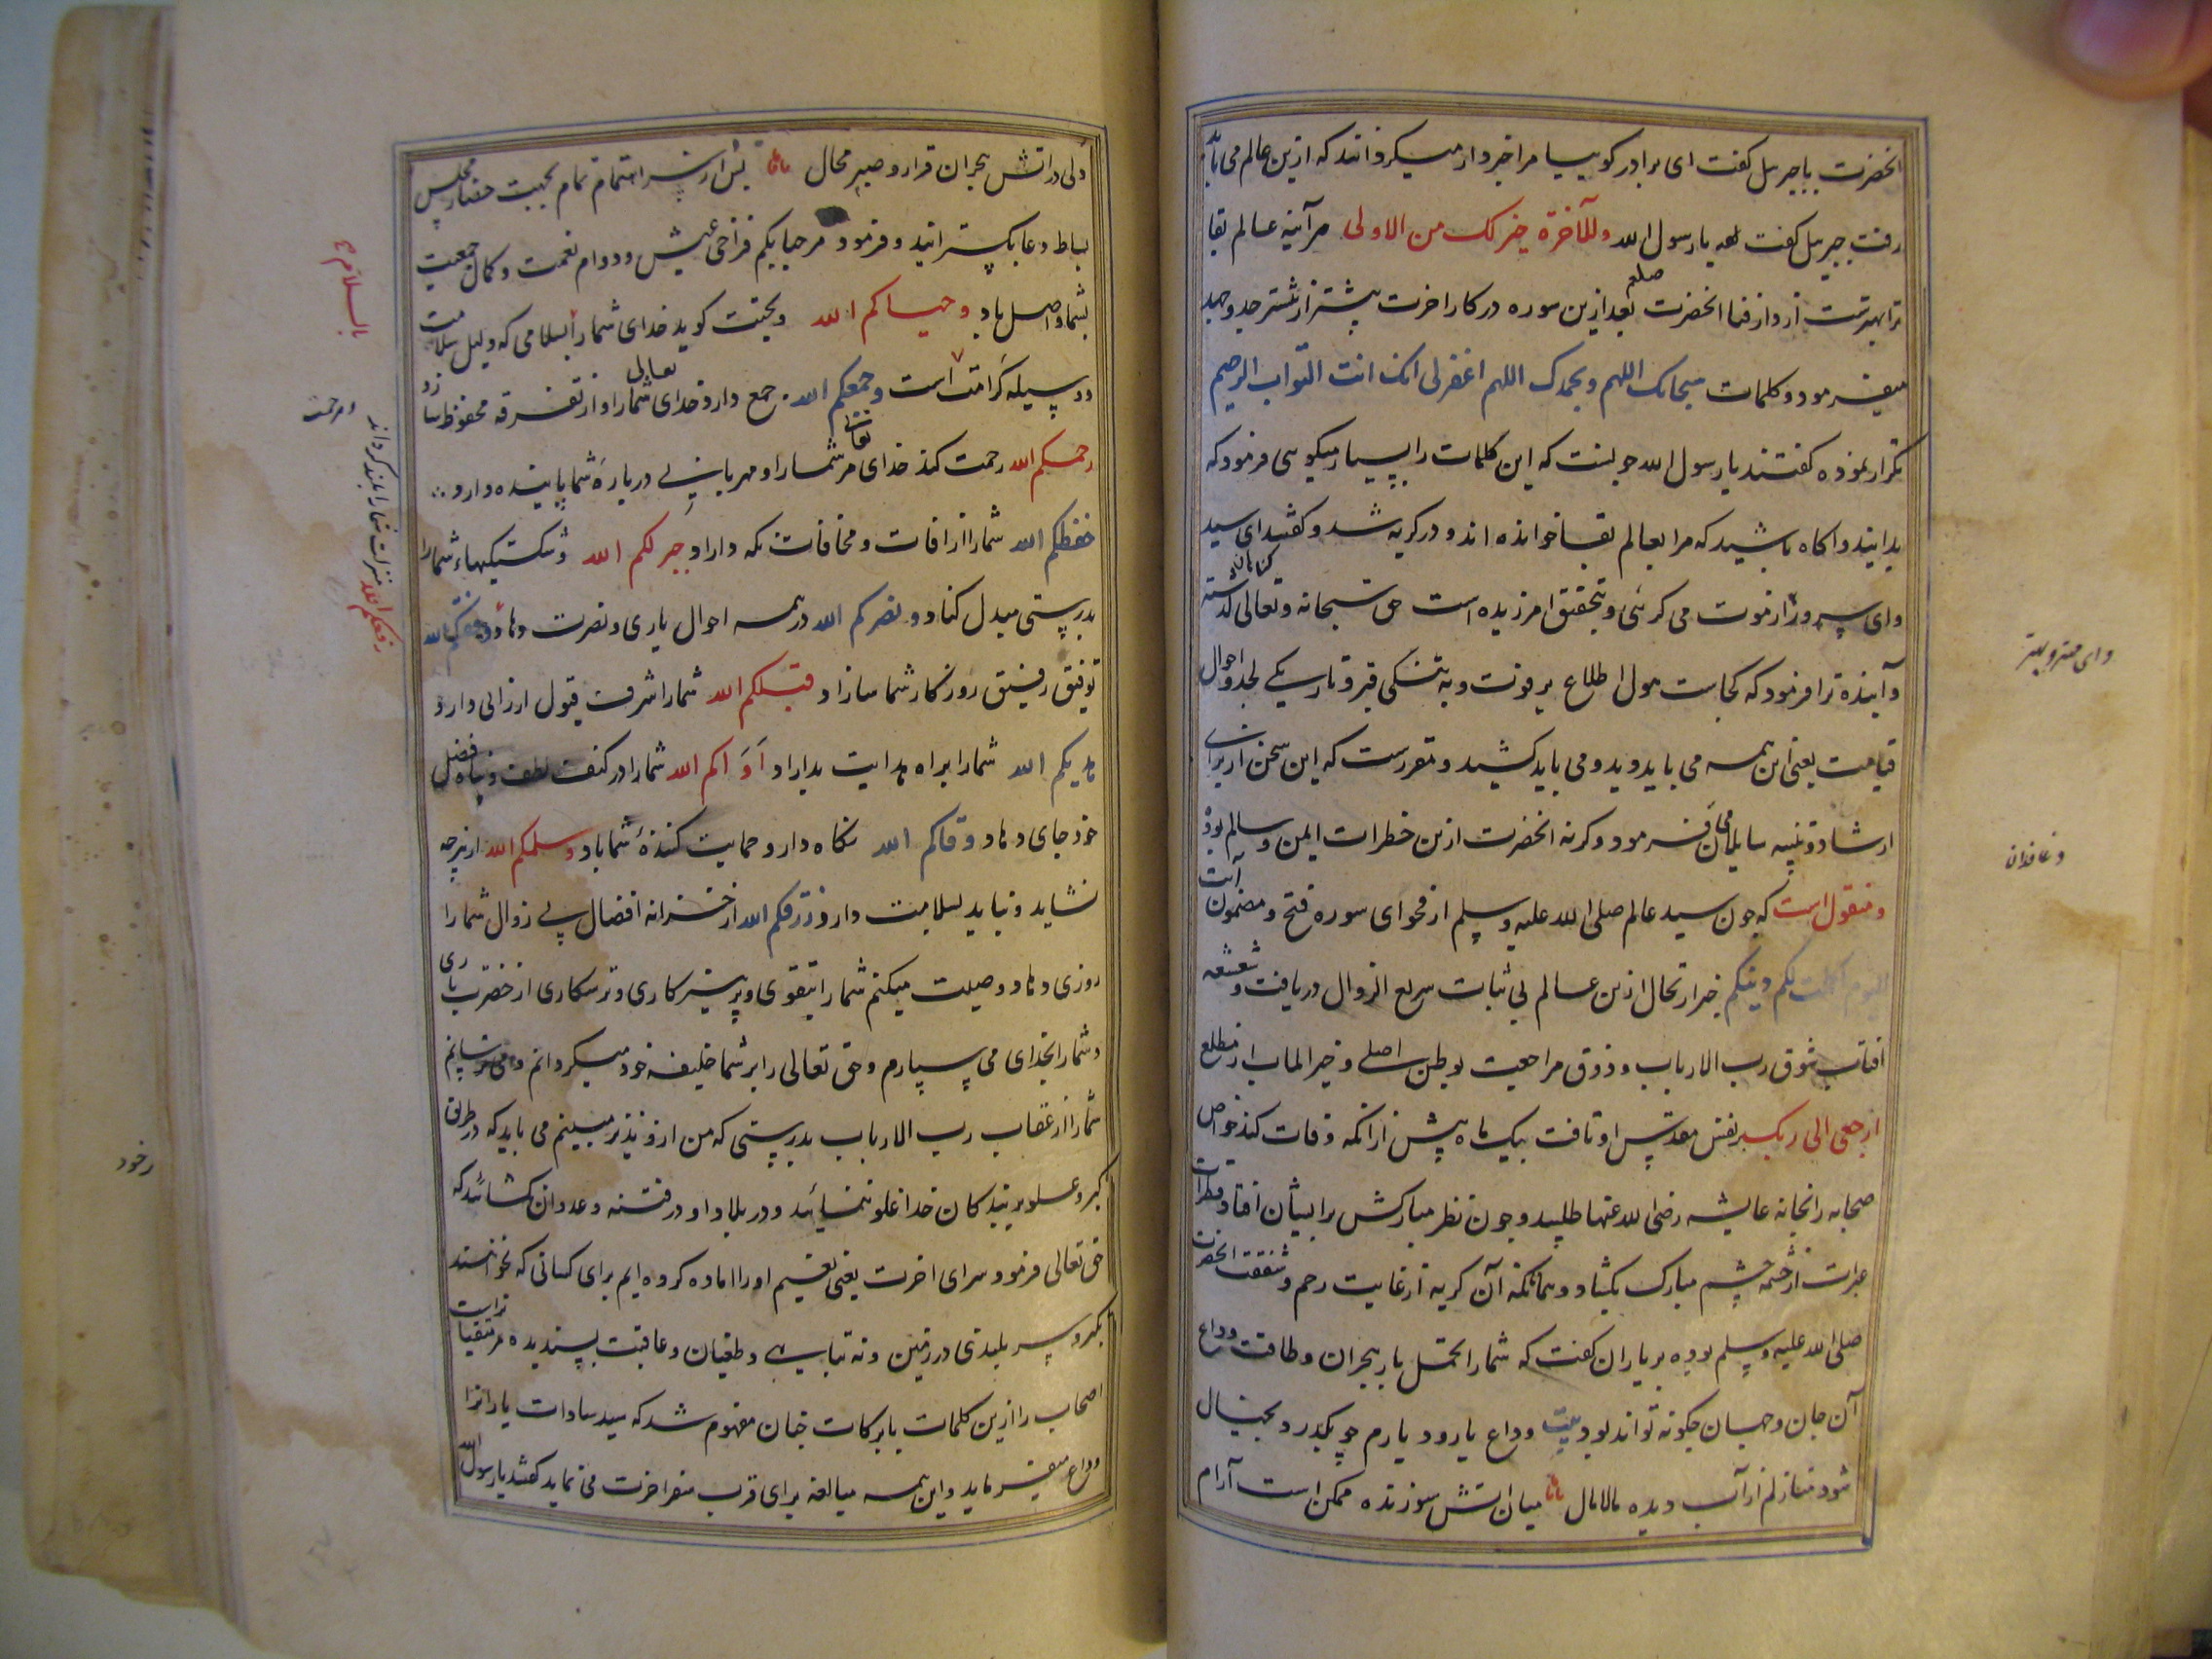 انحضرت باجبرئیل کفت ای برادر کوییا مرا خبردار میکردانند که ازین عالم می باید
رفت جبرئیل کفت یا رسول الله وللآخرة خیر لک من الاولی هرآینه عالم بقا
ترا بهترست از دار فنا انحضرت صلعم بعد ازین سوره در کار اخرت بیشتر از پیشتر جد و جهد
میفرمود و کلمات سبحانک اللهم وبحمدک اللهم اغفرلی انک انت التواب الرحیم
تکرار نموده کفتند یا رسول الله جونست که این کلمات را بسیار میکویی فرمود که
بدانید و اکاه باشید که مرا بعالم بقا خوانده اند و در کریه شد و کفتند ای سید
وای سرور از موت می کرئی و بتحقیق امرزیده است حق سبحانه و تعالی کناهان کذشته
و آینده ترا فرمود که کجاست هول اطلاع بر فوت و به تنکی قبر و تاریکی لحد و احوال
قیامت یعنی این همه می باید دید و می باید کشید و مقررست که این سخن از برای
ارشاد و تنبیه سایلان می فرمود و کرنه انحضرت ازین خطرات ایمن و سالم بود
و منقول است که جون سید عالم صلی الله علیه وسلم از فحوای سوره فتح و مضمون آیت
الیوم اکملت لکم دینکم خبر ارتحال ازین عالم بی ثبات سریع الزوال دریافت و شعشعه
افتاب شوق رب الارباب و ذوق مراجعت بوطن اصلی و خیر الماب از مطلع
ارجعی الی ربک بر نفس مقدس او تافت بیک ماه پیش از انکه وفات کند خواص
صحابه را بخانه عایشه رضی الله عنها طلبید و جون نظر مبارکش برایشان افتاد قطرات
عبرات از چشمه چشم مبارک بکشاد و همانکه آن کریه از غایت رحم و شفقت انحضرت
صلی الله علیه وسلم بوده بر یاران کفت که شما را تحمل بار هجران و طاقت وداع
آن جان و جهان جکونه تواند بود بیت وداع یار و دیارم چو بکذرد بخیال
شود منازلم از آب دیده مالامال میان اتش سوزنده ممکن است آرام
وای مهتر و بهتر
و غافلان
ولی در اتش هجران قرار و صبر محال پس از سر اهتمام تمام بجهت حضار مجلس
بساط دعا بکسترانید و فرمود مرحبا بکم فراخی عیش و دوام نعمت و کمال جمعیت
بشما واصل باد و حیاکم الله و تحیت کوید خدای شما را بسلامی که دلیل سلامت
و وسیله کرامت است و جمعکم الله جمع دارد خدای تعالی شما را و از تفرقه محفوظ سازد
رحمکم الله رحمت کند خدای تعالی مر شما را و مهربانی در باره شما پاینده دارد
حفظکم الله شما را از افات و مخافات نکه دارد و جبرکم الله و شکستیکهاء شما را
بدرستی مبدل کناد و نصرکم الله در همه احوال یاری و نصرت دهاد وفقکم الله
توفیق رفیق روزکار شما سازاد و قبلکم الله شما را شرف قبول ارزانی دارد
هدیکم الله شما را براه هدایت بداراد آواکم الله شما را در کنف لطف و پناه فضل
خود جای دهاد وقاکم الله نکاه دار و حمایت کنندهٔ شما باد و سلمکم الله از هرچه
نشاید و نباید بسلامت دارد رزقکم الله از خزانه افضال بی زوال شما را
روزی دهاد و وصیت میکنم شما را بتقوی و پرهیزکاری و ترسکاری از حضرت باری
و شما را بخدای می سپارم و حق تعالی را بر شما خلیفه خود میکردانم و می ترسانم
شما را از عقاب رب الارباب بدرستی که من ازو نذیر مبینم می باید که در طریق
کبر و علو بر بندکان خدا غلو ننمائید و در بلاد او در فتنه و عدوان نکشائید که
حق تعالی فرمود سرای اخرت یعنی نعیم او را اماده کرده ایم برای کسانی که نخواستند
تکبر و سر بلندی در زمین و نه تباهی و طغیان و عاقبت پسندیده مر متقیان راست
اصحاب را ازین کلمات بابرکات چنان مفهوم شد که سید سادات یاران را
وداع میفرماید و این همه مبالغه برای قرب سفر اخرت می نماید کفتند یا رسول الله
بالسلام ع
و مرحمت
رفعکم الله منزلت شما را بلند کرداند
رخود